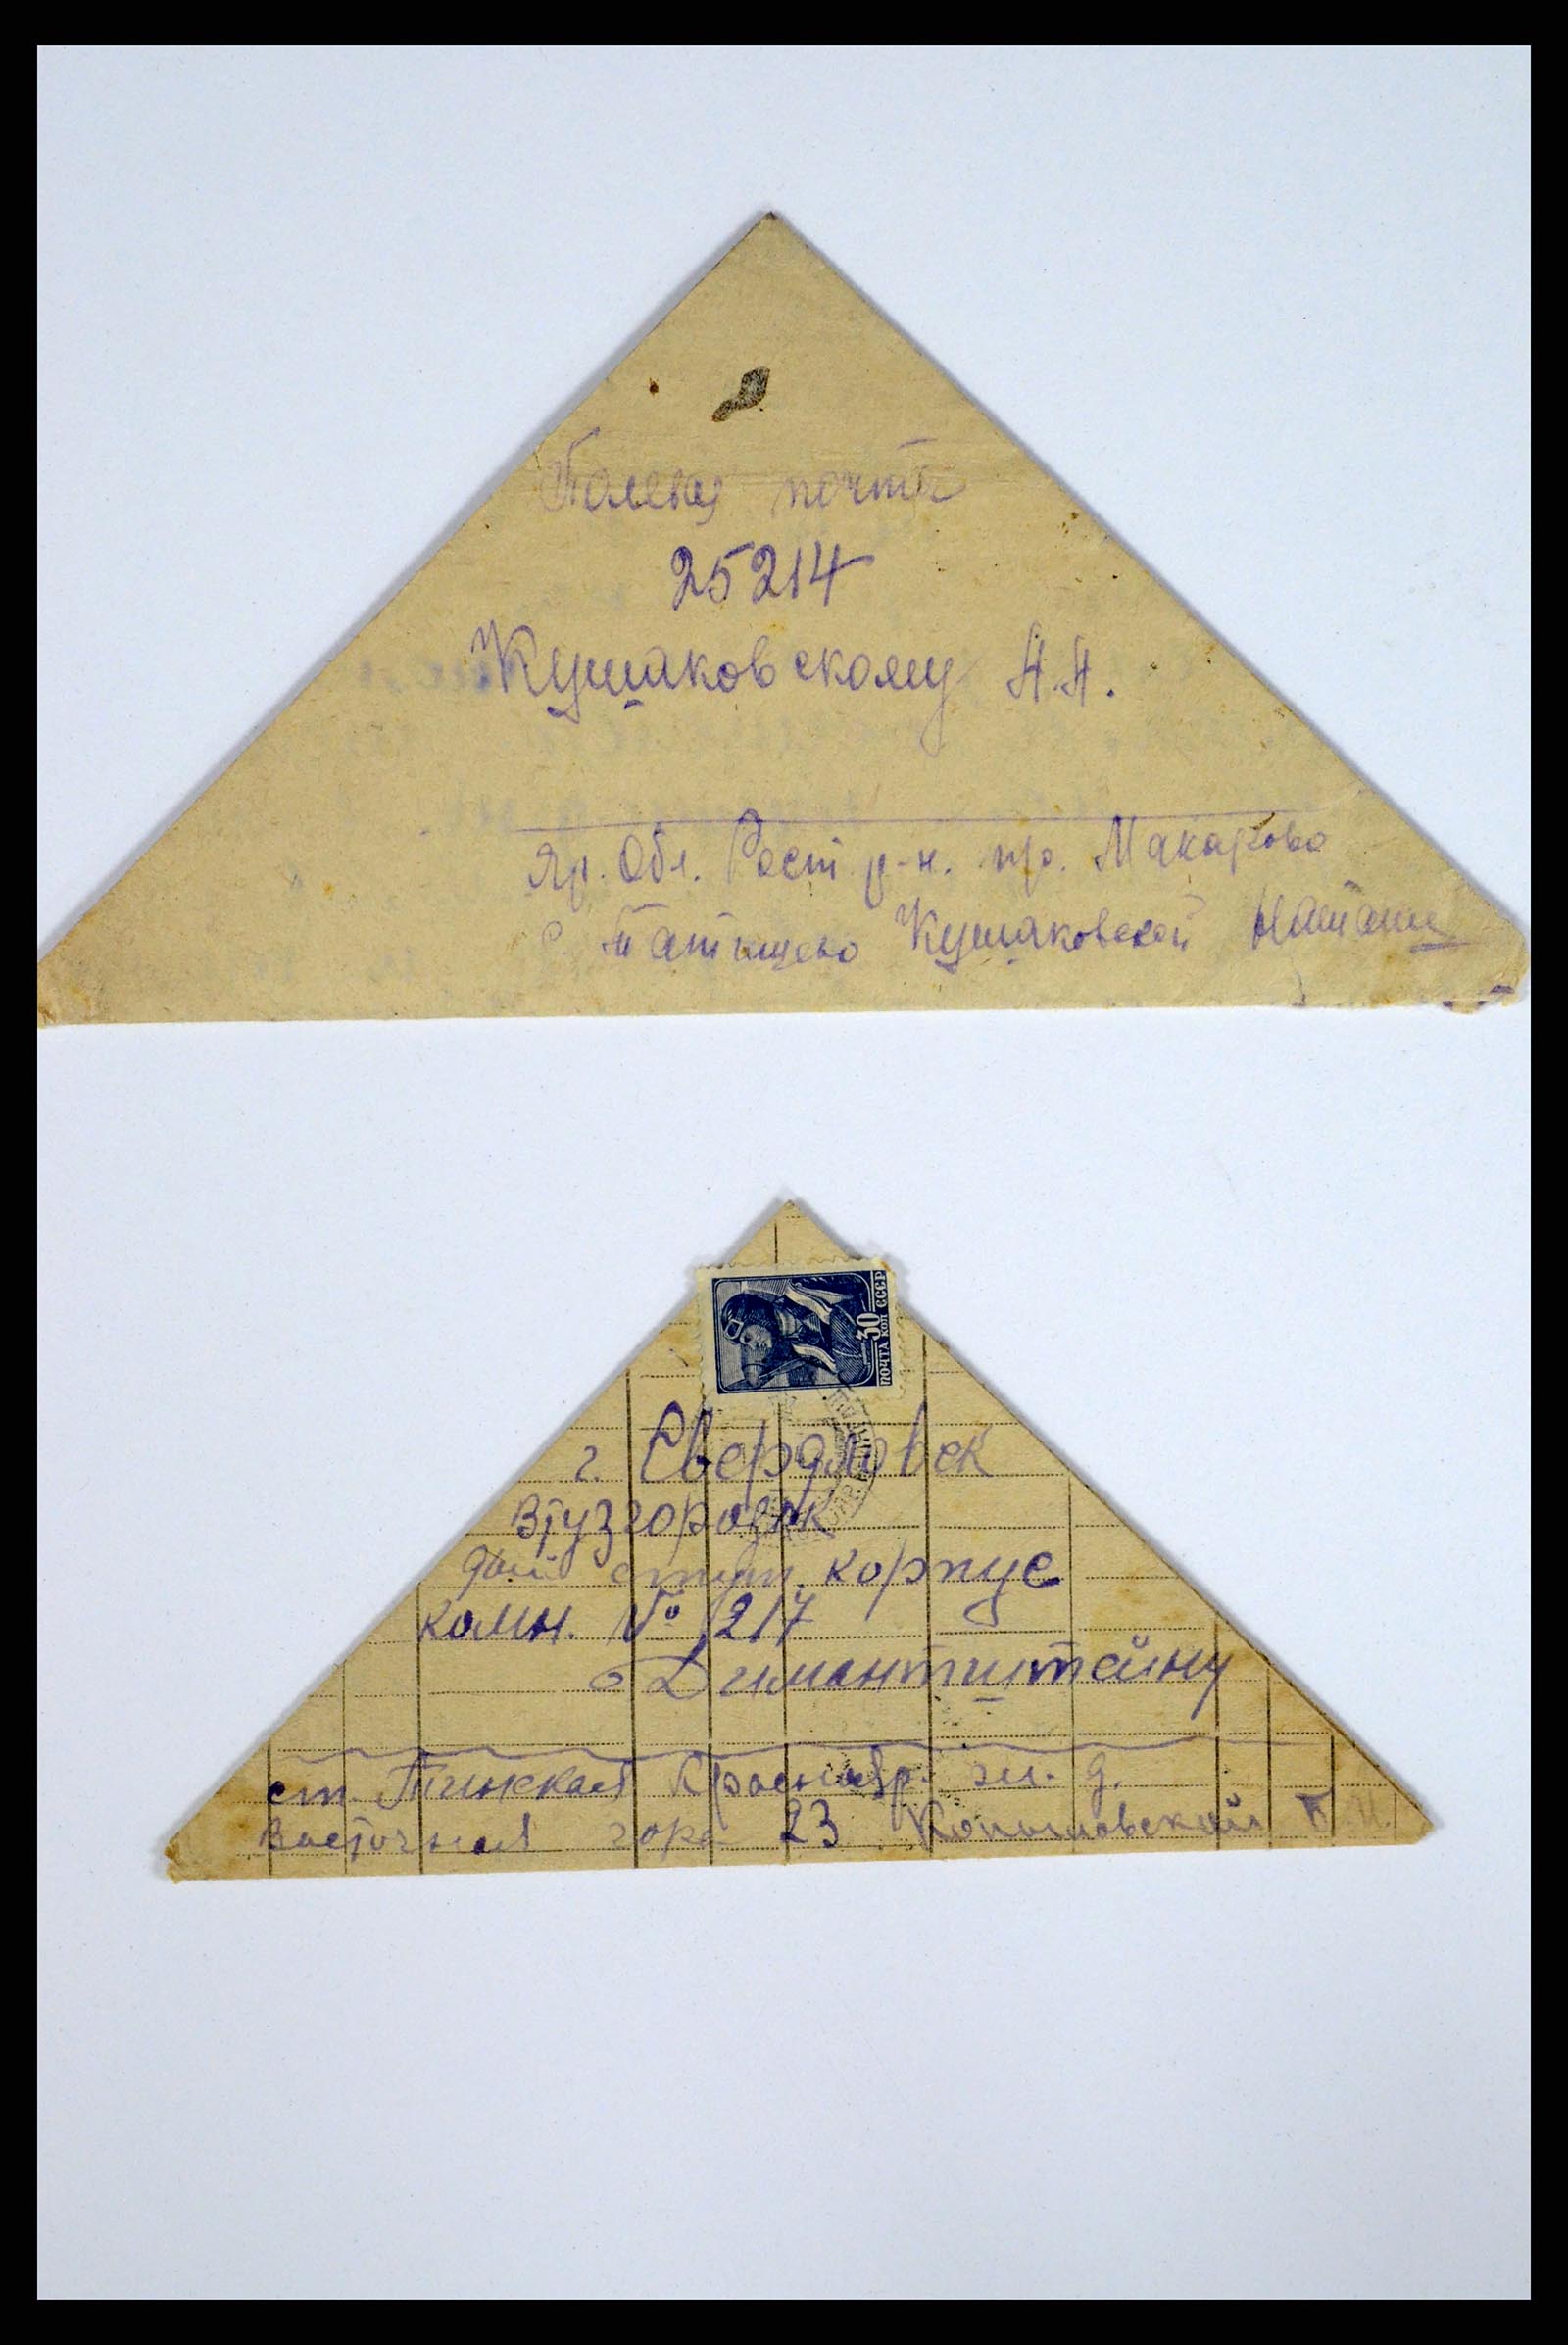 Полевая почта
25214
Кушаковскому А.А.
Яр. Обл. Рост р-н. п/о. Макарово
с Татищево Кушаковской Наташи
ПОЧТА СССР
30 КОП
г. Свердловск
Втузгородок
студ. корпус
комн. № 217
Димантштейну
ст. Тинская Краснояр. ж. д.
Восточная гора 23